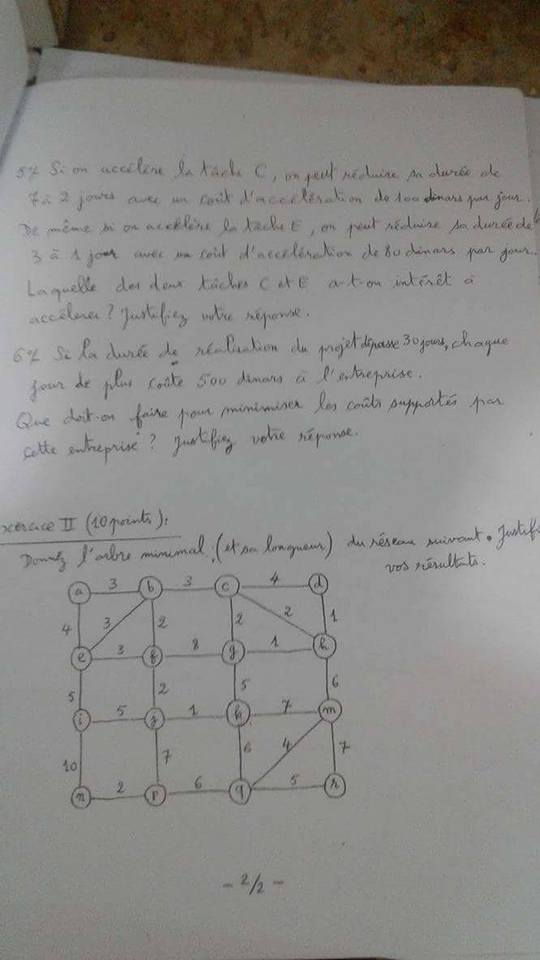 5°/ Si on accélère la tâche C, on peut réduire sa durée de
7 à 2 jours avec un coût d'accélération de 100 dinars par jour.
De même si on accélère la tâche E, on peut réduire sa durée de
3 à 1 jour avec un coût d'accélération de 80 dinars par jour.
Laquelle des deux tâches C et E a-t-on intérêt à
accélerer? Justifiez votre réponse.
6°/ Si la durée de réalisation du projet dépasse 30 jours, chaque
jour de plus coûte 500 dinars à l'entreprise.
Que doit-on faire pour minimiser les coûts supportés par
cette entreprise? Justifiez votre réponse.
xercice II (10 points):
Donnez l'arbre minimal (et sa longueur) du réseau suivant. Justifi
vos résultats.
a 3 b 3 c 4 d
4 3 2 2 2 1
e 3 f 8 g 1 h
5 2 5 6
i 5 j 1 k 7 m
10 7 6 4 7
n 2 p 6 q 5 r
- 2/2 -